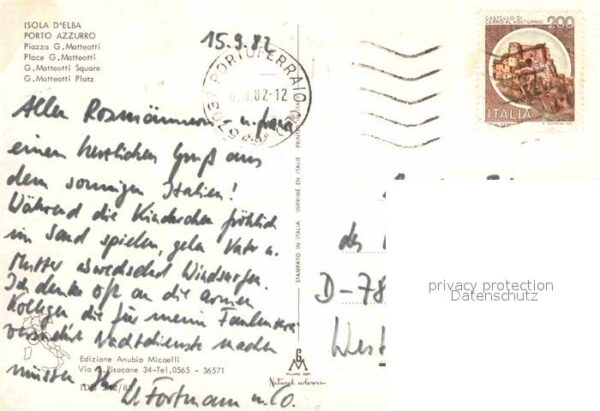 ISOLA D'ELBA
PORTO AZZURRO
Piazza G. Matteotti
Place G. Matteotti
G. Matteotti Square
G. Matteotti Platz
15.9.82
57037 PORTOFERRAIO
.82-12
CASTELLO DI
CERRO AL VOLTURNO
200
ITALIA
Allen Rosmännern - u. frau
einen herzlichen Gruß aus
dem sonnigen Italien!
Während die Kinderchen fröhlich
im Sand spielen, gehn Vater u.
Mutter abwechselnd Windsurfen.
Ich denke oft an die armen
Kollegen die für meine Faulenzerei
verstärkt Nachtdienste machen
müssen Ihr W. Fortmann u. Co.
STAMPATO IN ITALIA IMPRIMÉ EN ITALIE PRINTED IN
des
D-78
West
privacy protection
Datenschutz
Edizione Anubia Micaelli
Via Pisacane 34-Tel. 0565 - 36571
G M
MILANO
Natural colours